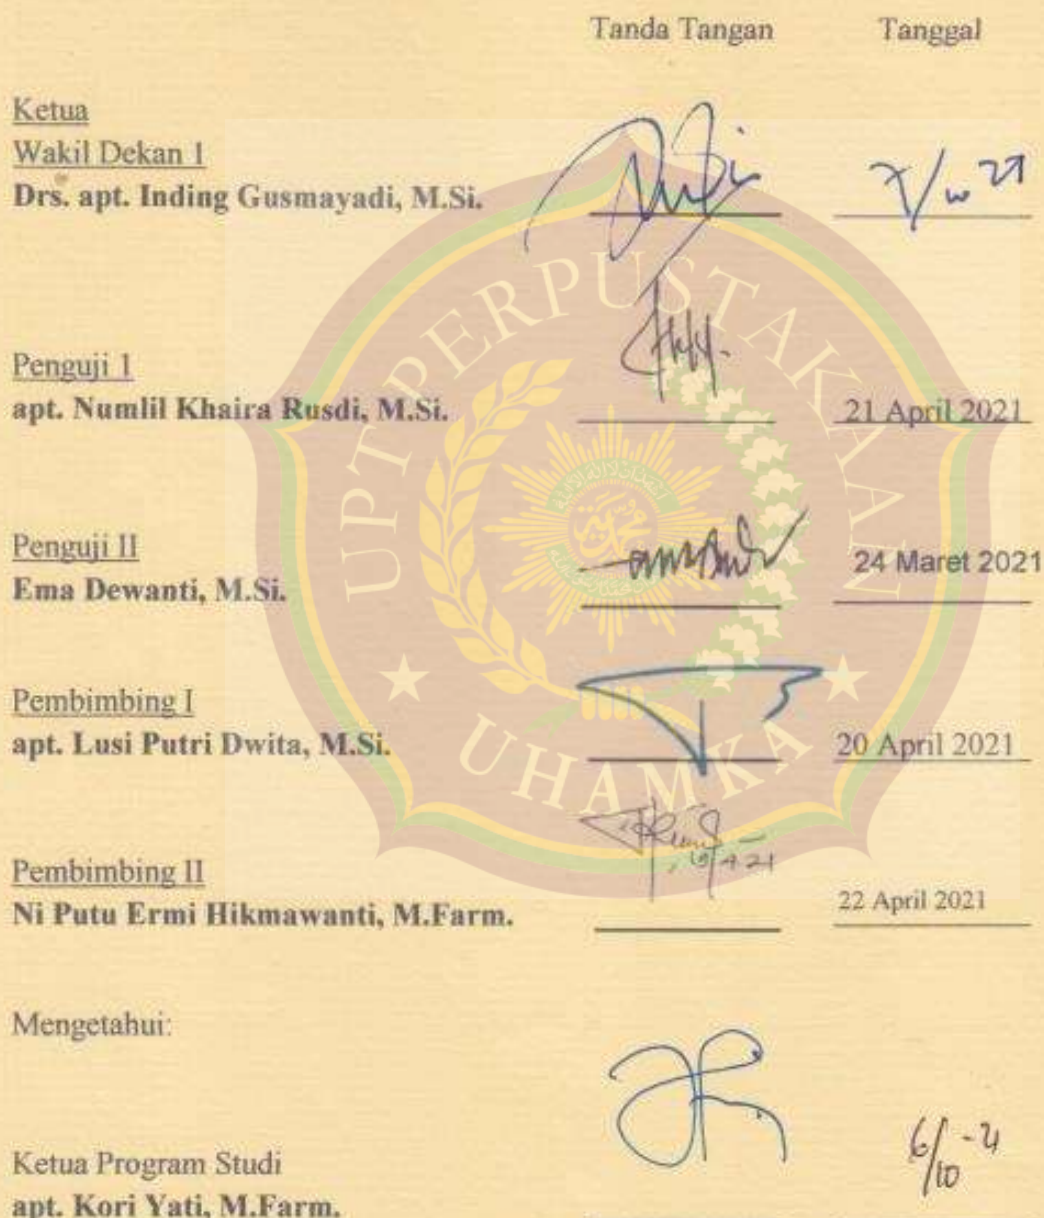 Tanda Tangan Tanggal
Ketua
Wakil Dekan 1
Drs. apt. Inding Gusmayadi, M.Si.
Penguji 1
apt. Numlil Khaira Rusdi, M.Si.
21 April 2021
Penguji II
Ema Dewanti, M.Si.
24 Maret 2021
Pembimbing I
apt. Lusi Putri Dwita, M.Si.
20 April 2021
Pembimbing II
Ni Putu Ermi Hikmawanti, M.Farm.
22 April 2021
Mengetahui:
Ketua Program Studi
apt. Kori Yati, M.Farm.
6/10-21
UPT PERPUSTAKAAN
UHAMKA